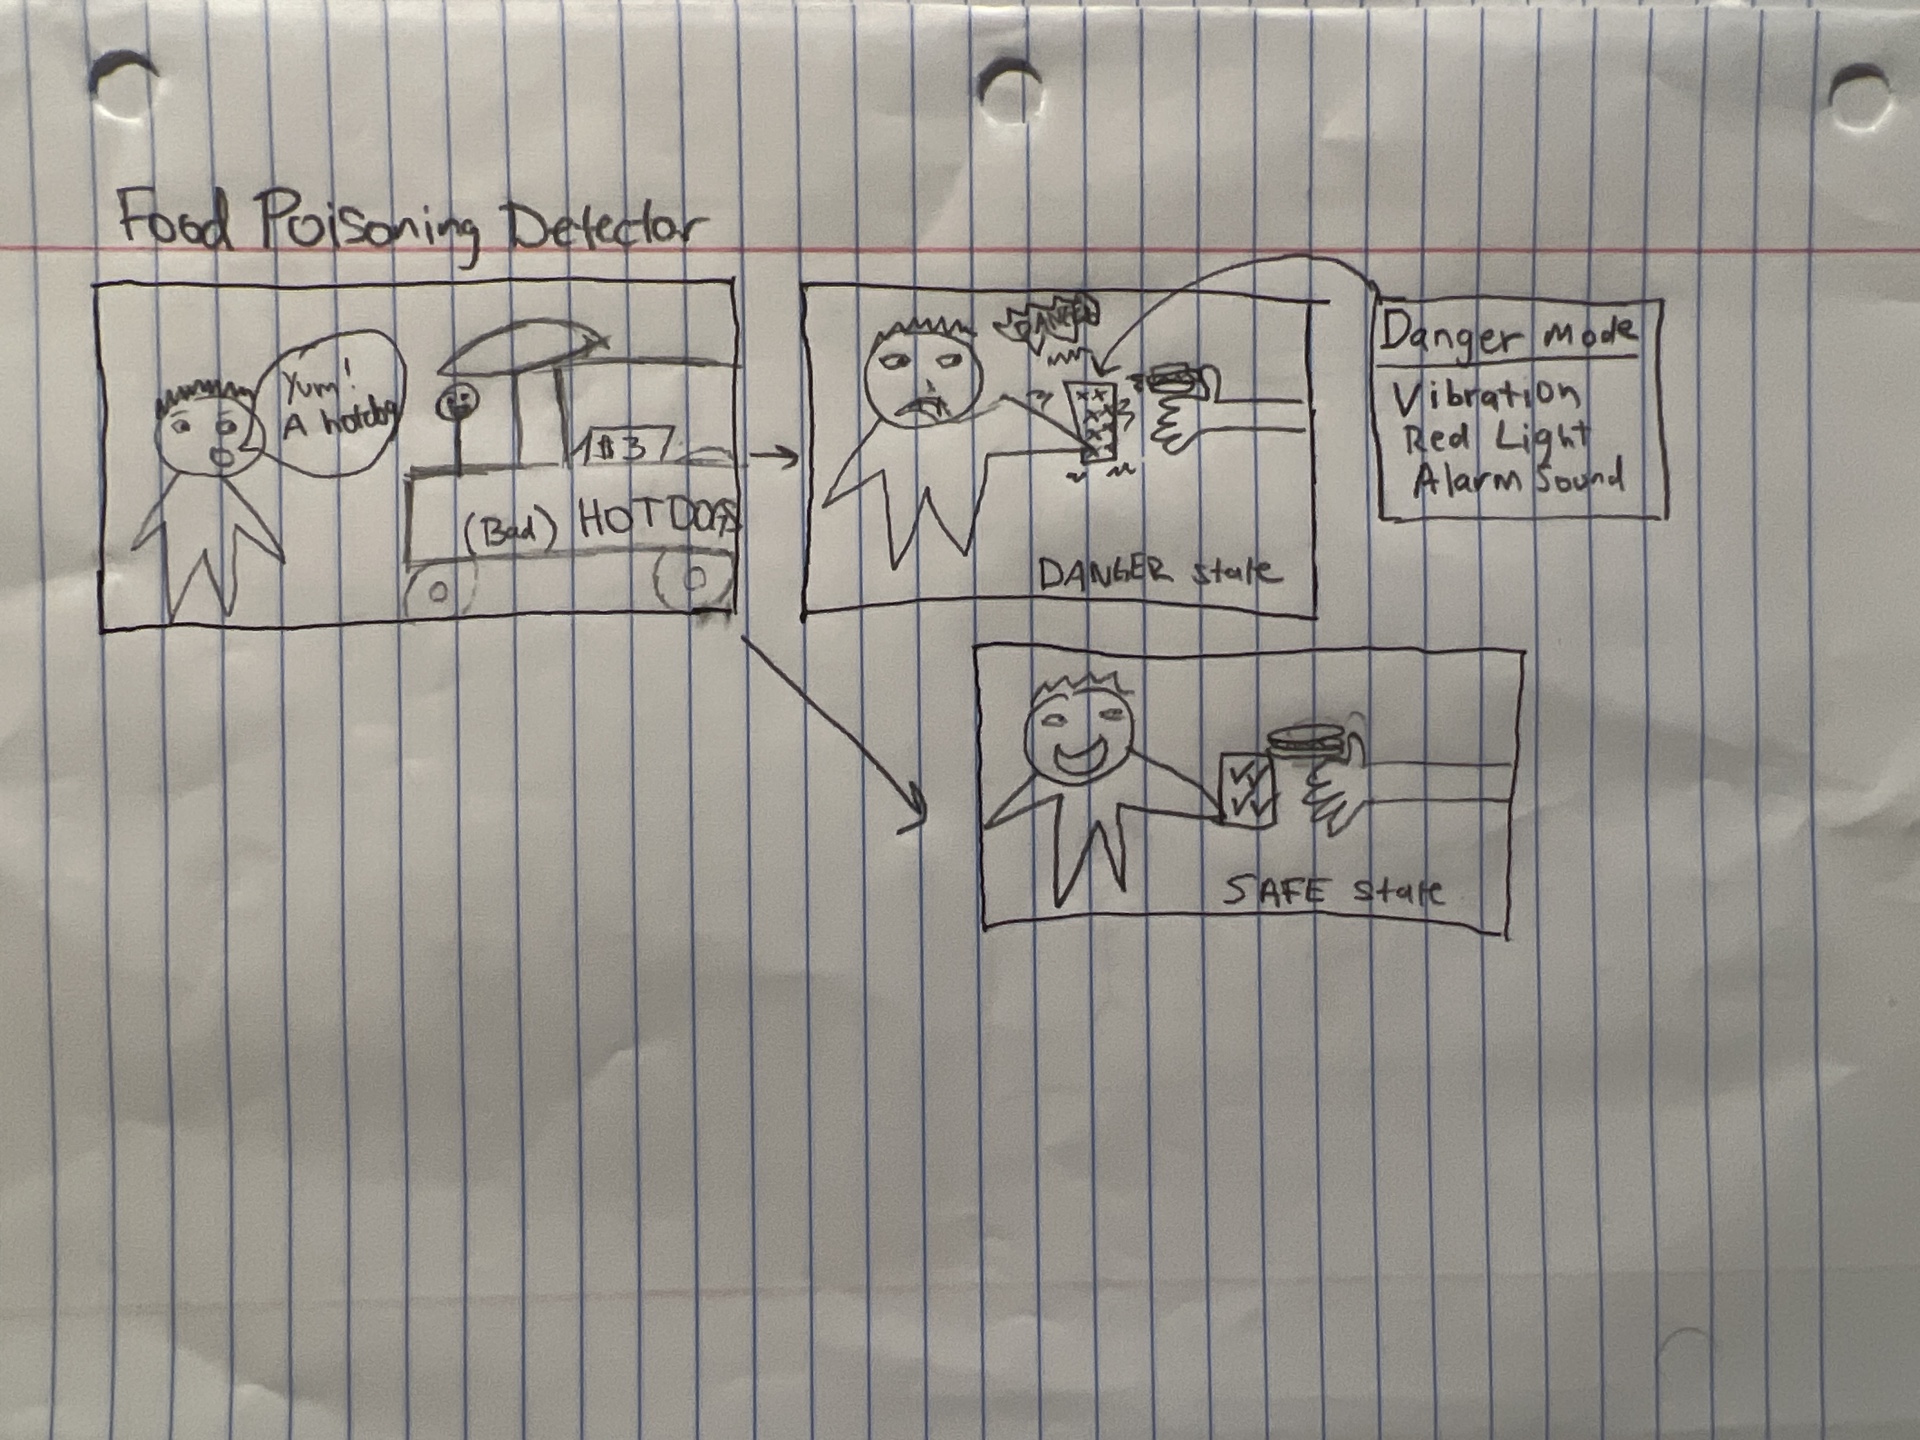 Food Poisoning Detector
Yum!
A hotdog
$3
(Bad) HOTDOGS
DANGER
DANGER state
Danger Mode
Vibration
Red Light
Alarm Sound
SAFE state